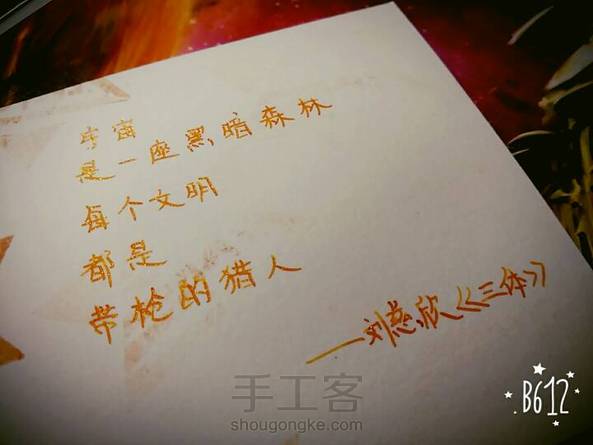 宇宙
是一座黑暗森林
每个文明
都是
带枪的猎人
——刘慈欣《三体》
手工客
shougongke.com
B612